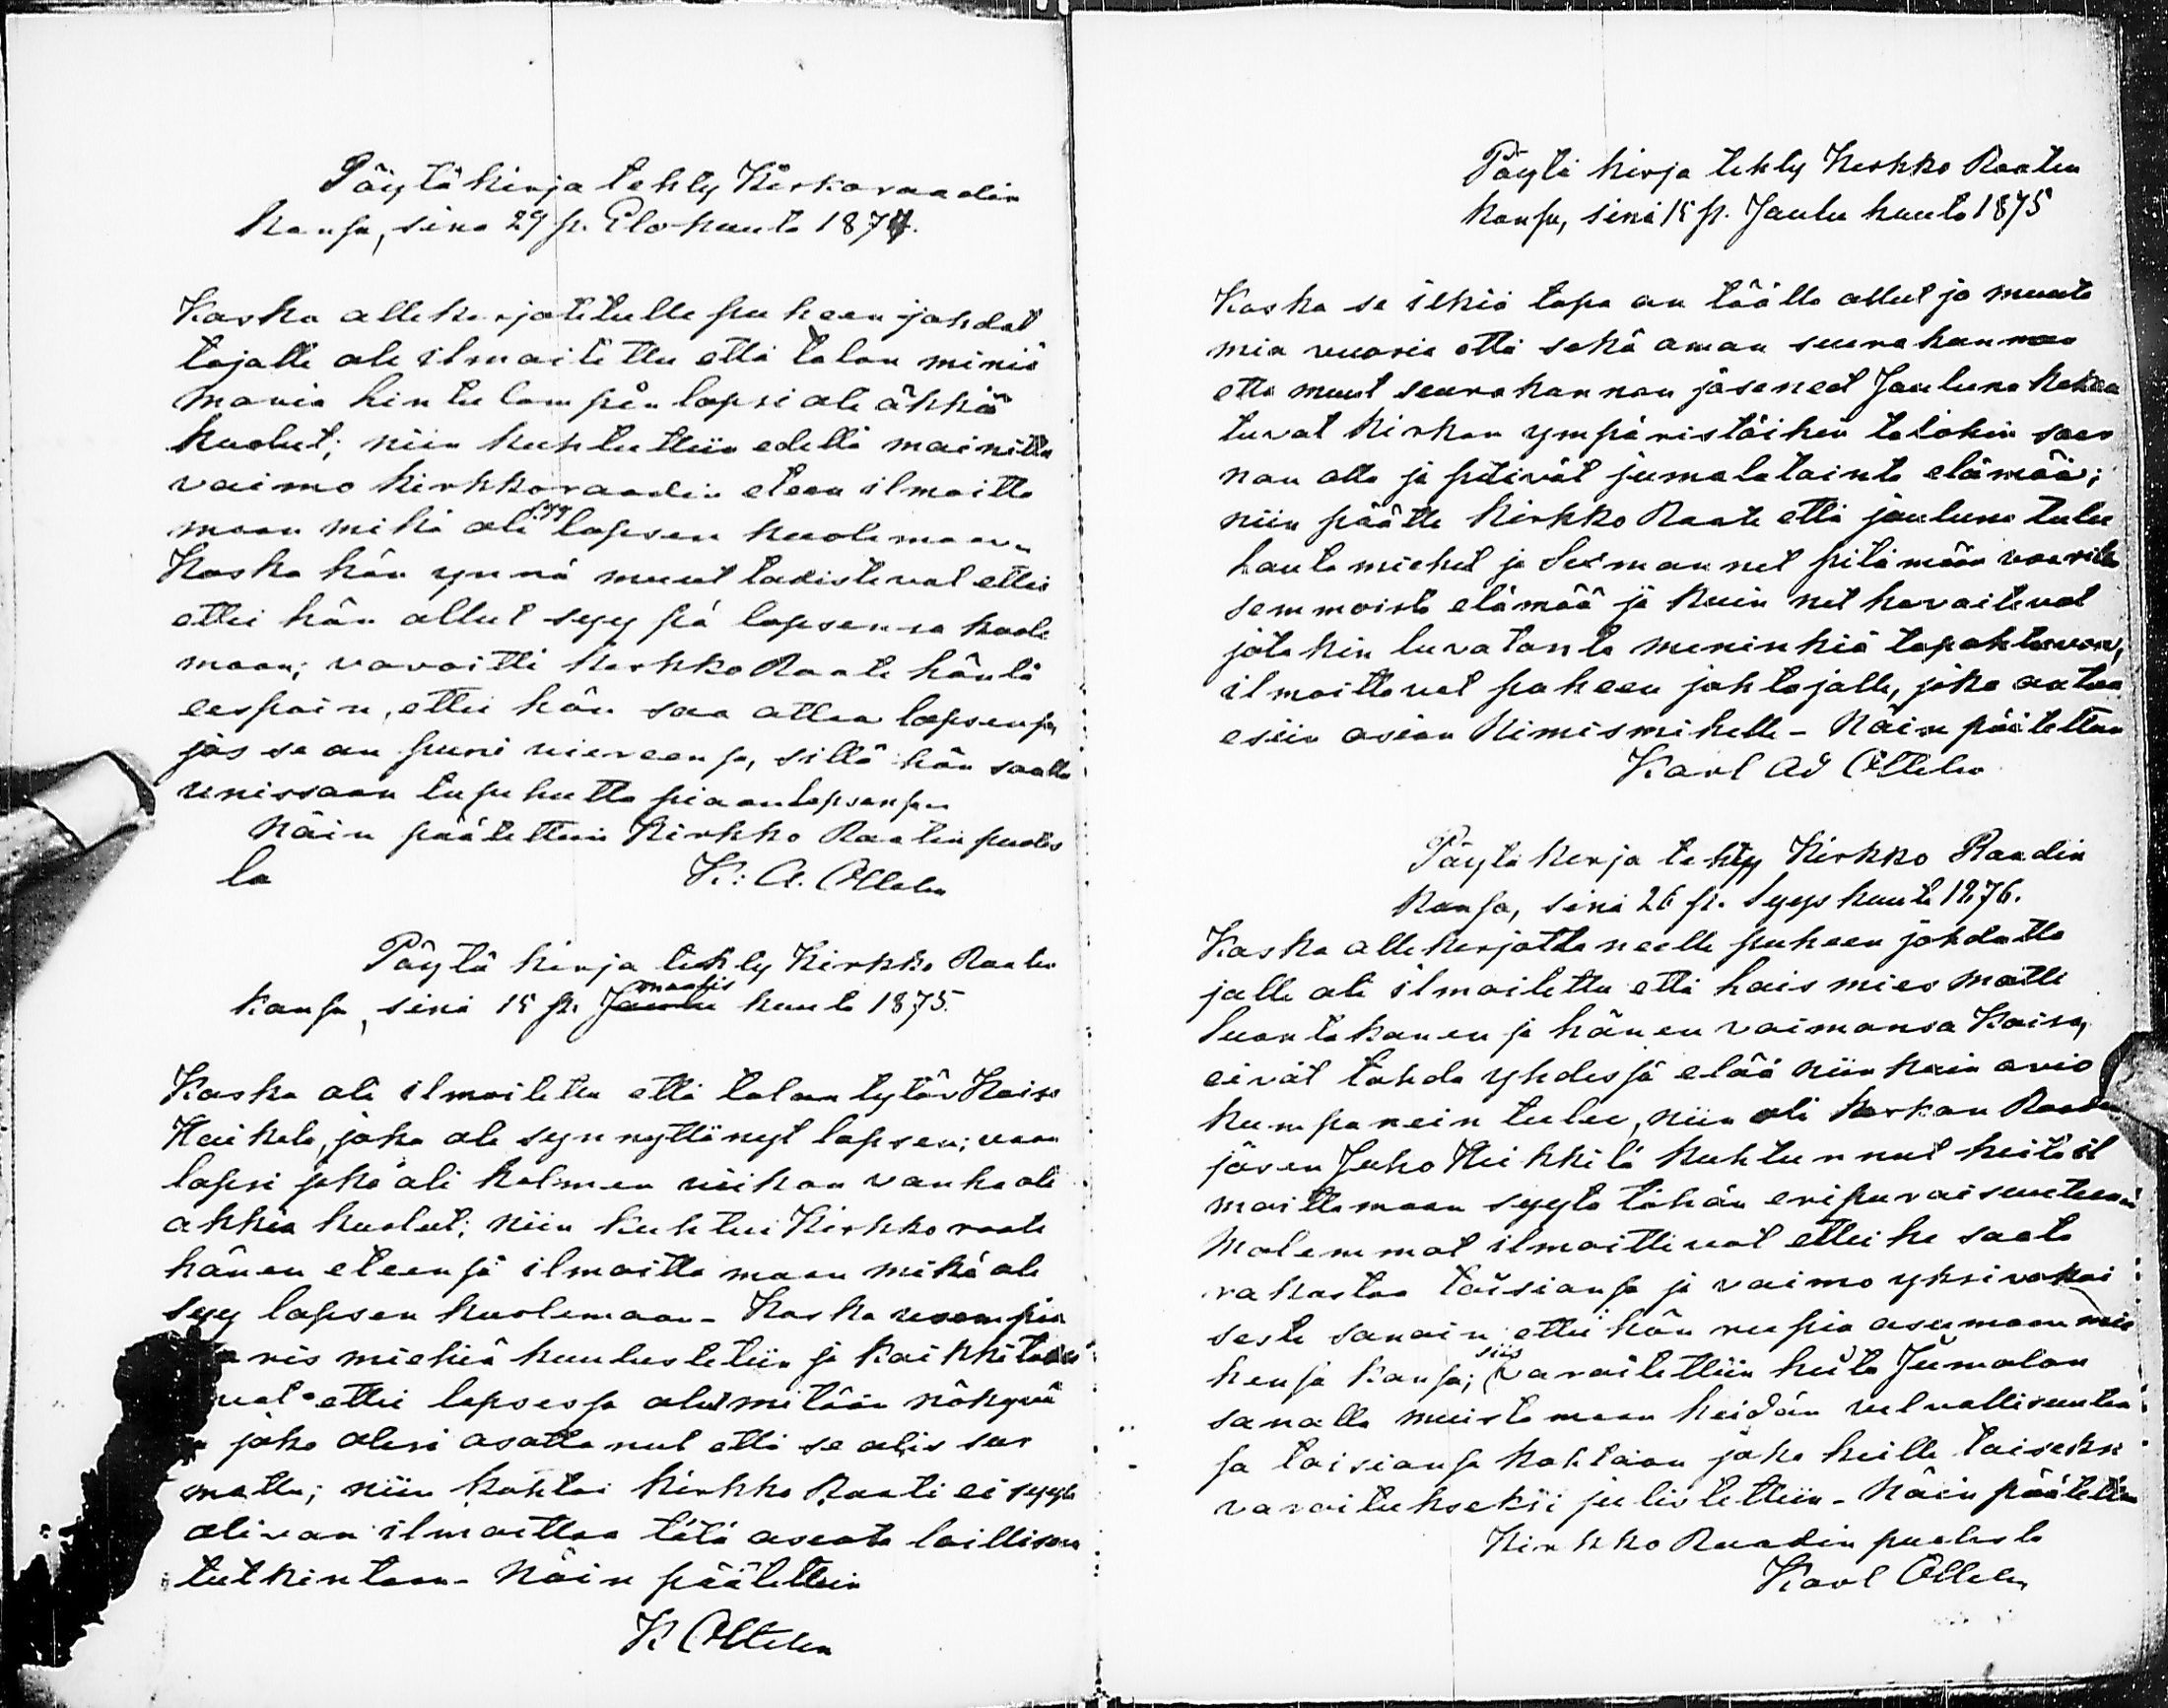 Pöytäkirja tehty Kirkoraadin
kansa, sinä 29 p. Elo-kuuta 1874.
Koska allekirjoitetulle puheen johdat
tajalle oli ilmoitettu että talon miniä
Maria Hintulammin lapsi oli äkkiä
kuolut; niin kuhtuttiin edellä mainittu
vaimo kirkkoraadin eteen ilmoitta
maan mikä oli syy lapsen kuolemaan
Koska hän ynnä muut todistivat ettei
ettei hän ollut syy pä lapsensa kuole
maan; varoitti kirkko Raati häntä
eespäin, ettei hän saa ottaa lapsensa,
jos se on pieni viereensa, sillä hän saatta
unissaan tupehutta piaan lapsensa
Näin päätettiin Kirkko Raatin puoles
la
K: A. Ottelin
Pöytä kirja tehty Kirkko Raatin
kansa, sinä 15 p. Joulu maalis kuuta 1875.
Koska oli ilmoitettu että talon tytär Kaisa
Haikola, joka oli synnyttänyt lapsen; vaan
lapsi joka oli kolmen viikon vanha oli
äkkiä kuolut; niin kuhtui Kirkko raati
hänen eteensä ilmoitta maan mikä oli
syy lapsen kuolemaan - Koska useampia
aris miehiä kuulustetiin ja kaikki todis
vat ettei lapsessa olut mitään näkyvä
joka olisi osotta nut että se olis sur
mattu; niin kohtoi kirkko Raati ei syytä
olivan ilmoittaa tätä asiata lailliseen
tutkintoon - Näin päätettiin
K Ottelin
Pöytä kirja tehty Kirkko Raatin
kansa, sinä 15 p. Joulu kuuta 1875
Koska se ilkiä tapa on täällä ollut jo muuta
mia vuosia että sekä oman seurakunnan
että muut seurakunnan jäsenet Jouluna kokoa
tuvat kirkon ympäristöihin taloihin saar
nan alla ja pitivät jumalatointa elämää;
niin päätti kirkko Raati että jouluna tulee
lauta miehet ja Seksmannet pitämään vaarin
semmoista elämää ja kuin net havaitevat
jotakin luvatonta meninkiä tapahtuvan,
ilmoittavat puheen johtajalle, joka antaa
esiin asian Nimismiehelle - Näin päätettiin
Karl Ad Ottelin
Pöytä kirja tehty Kirkko Raadin
kansa, sinä 26 p. Syys kuuta 1876.
Koska allekirjotta neelle puheen johdatta
jalle oli ilmoitettu että huis mies Matti
Luontakanen ja hänen vaimonsa Kaisa,
eivät tahdo yhdessä elää niin kuin avio
kumpanein tulee, niin oli kirkon Raadin
jäsen Juho Heikkilä kuhtunnut heitä il
moittamaan syytä tähän eripuraisuuteen
Molemmat ilmoittivat ettei he saata
rakastaa toisiansa ja vaimo yksivakai
sesti sanoin ettei hän rupia asumaan mie
hensä kansa; siis varoitettiin heitä Jumalan
sanalla muistamaan heidän velvallisuuten
sa toisiansa kohtaan joka heille toiseksi
varoitukseksi julistettiin - Näin päätettiin
Kirkko Raadin puolesta
Karl Ottelin